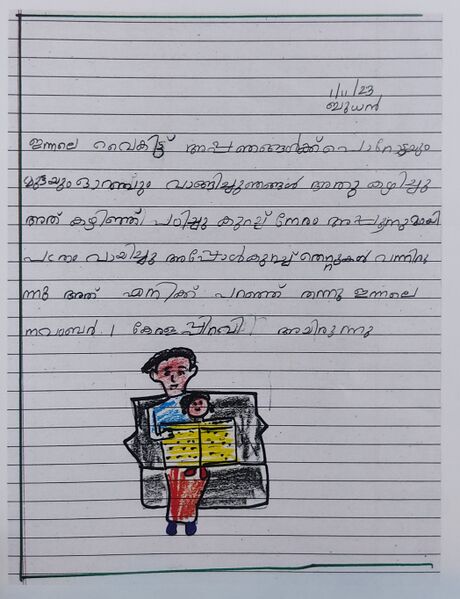 1/11/23
ബുധൻ
ഇന്നലെ വൈകിട്ട് അപ്പ ഞങ്ങൾക്ക് പൊറോട്ടയും
മുട്ടയും ഓറഞ്ചും വാങ്ങിച്ചു ഞങ്ങൾ അതു കഴിച്ചു
അത് കഴിഞ്ഞ് പഠിച്ചു കുറച്ച് നേരം അപ്പനുമായി
പത്രം വായിച്ചു അപ്പോൾ കുറച്ച് തെറ്റുകൾ വന്നിരു
ന്നു അത് എനിക്ക് പറഞ്ഞ് തന്നു ഇന്നലെ
നവംബർ 1 കേരളപ്പിറവി അയിരുന്നു